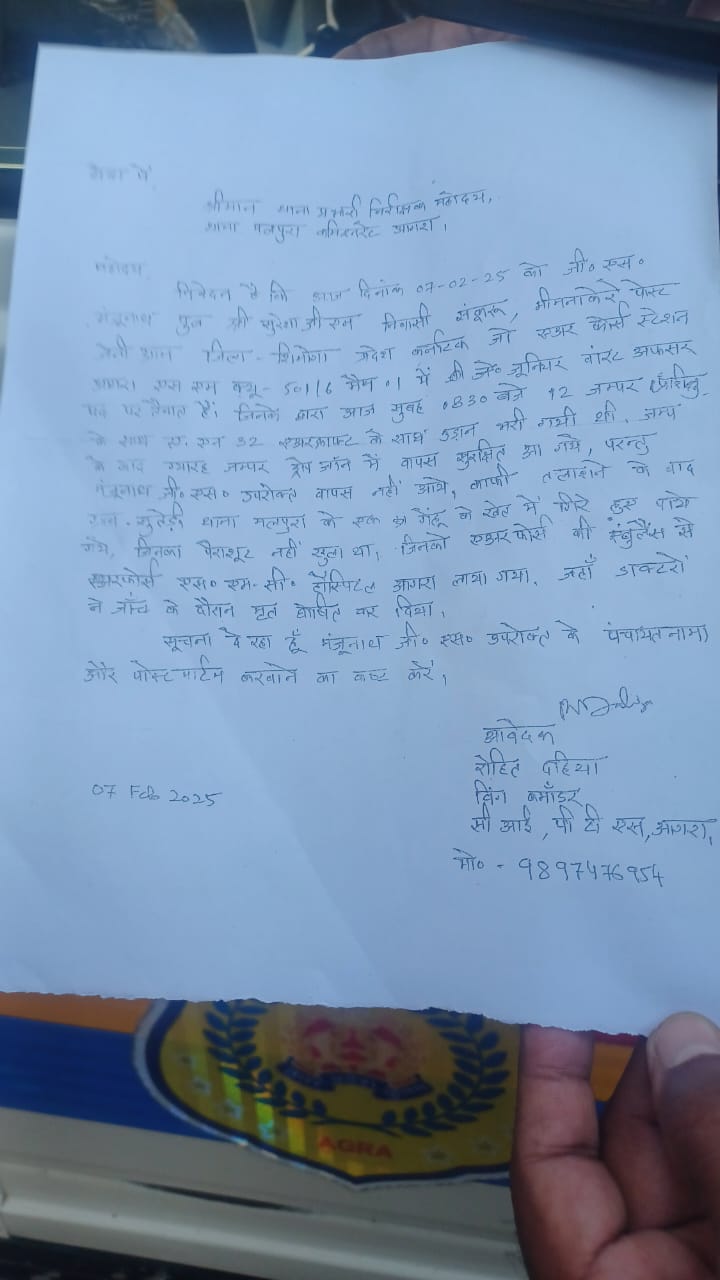 सेवा में,
श्रीमान थाना प्रभारी निरीक्षक महोदय,
थाना मलपुरा कमिश्नरेट आगरा।
महोदय,
निवेदन है कि आज दिनांक 07-02-25 को जी० एस०
मंजूनाथ पुत्र श्री सुरेश जी एम निवासी संकूरू, पोस्ट
जिला - शिमोगा प्रदेश कर्नाटक जो एअर फोर्स स्टेशन
आगरा एस एम क्यू- 501/6 में जूनियर वारंट अफसर
पद पर तैनात हैं। जिनके द्वारा आज सुबह 0830 बजे 12 जम्पर
के साथ ए. एन 32 एअरक्राफ्ट के साथ उड़ान भरी गयी थी, जम्प
के बाद ग्यारह जम्पर ड्रोप जॉन में वापस सुरक्षित आ गये, परन्तु
मंजूनाथ जी० एस० उपरोक्त वापस नहीं आये, काफी तलाशने के बाद
थाना मलपुरा के एक गेंहू के खेत में गिरे हुए पाये
गये, जिनका पैराशूट नहीं खुला था, जिनको एअर फोर्स की एंबुलैंस से
एअरफोर्स एस० एम. सी० हॉस्पिटल आगरा लाया गया, जहाँ डाक्टरों
ने जाँच के दौरान मृत घोषित कर दिया,
सूचना दे रहा हूँ मंजूनाथ जी० एस० उपरोक्त के पंचायतनामा
और पोस्टमार्टम करवाने का कष्ट करें,
आवेदक
रोहित दहिया
07 Feb 2025
विंग कमाँडर
सी आई, पी टी एस, आगरा,
मो० - 9897476954
AGRA